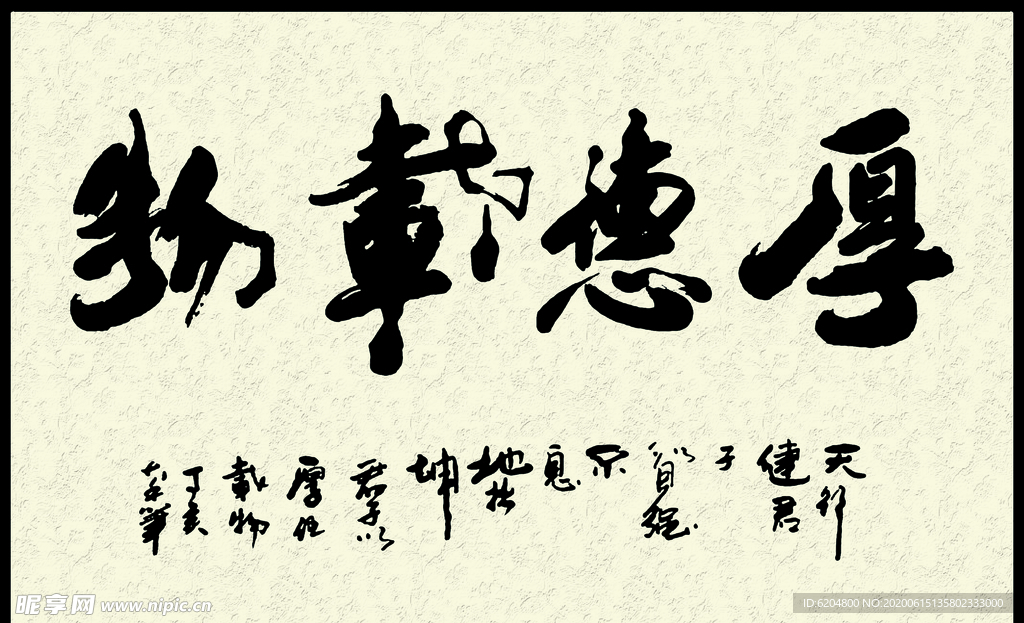 厚德載物
天行
健君
子
以自强
不
息
地势
坤
君子以
厚德
載物
丁亥
昵享网 www.nipic.cn
ID:6204800 NO:20200615135802333000